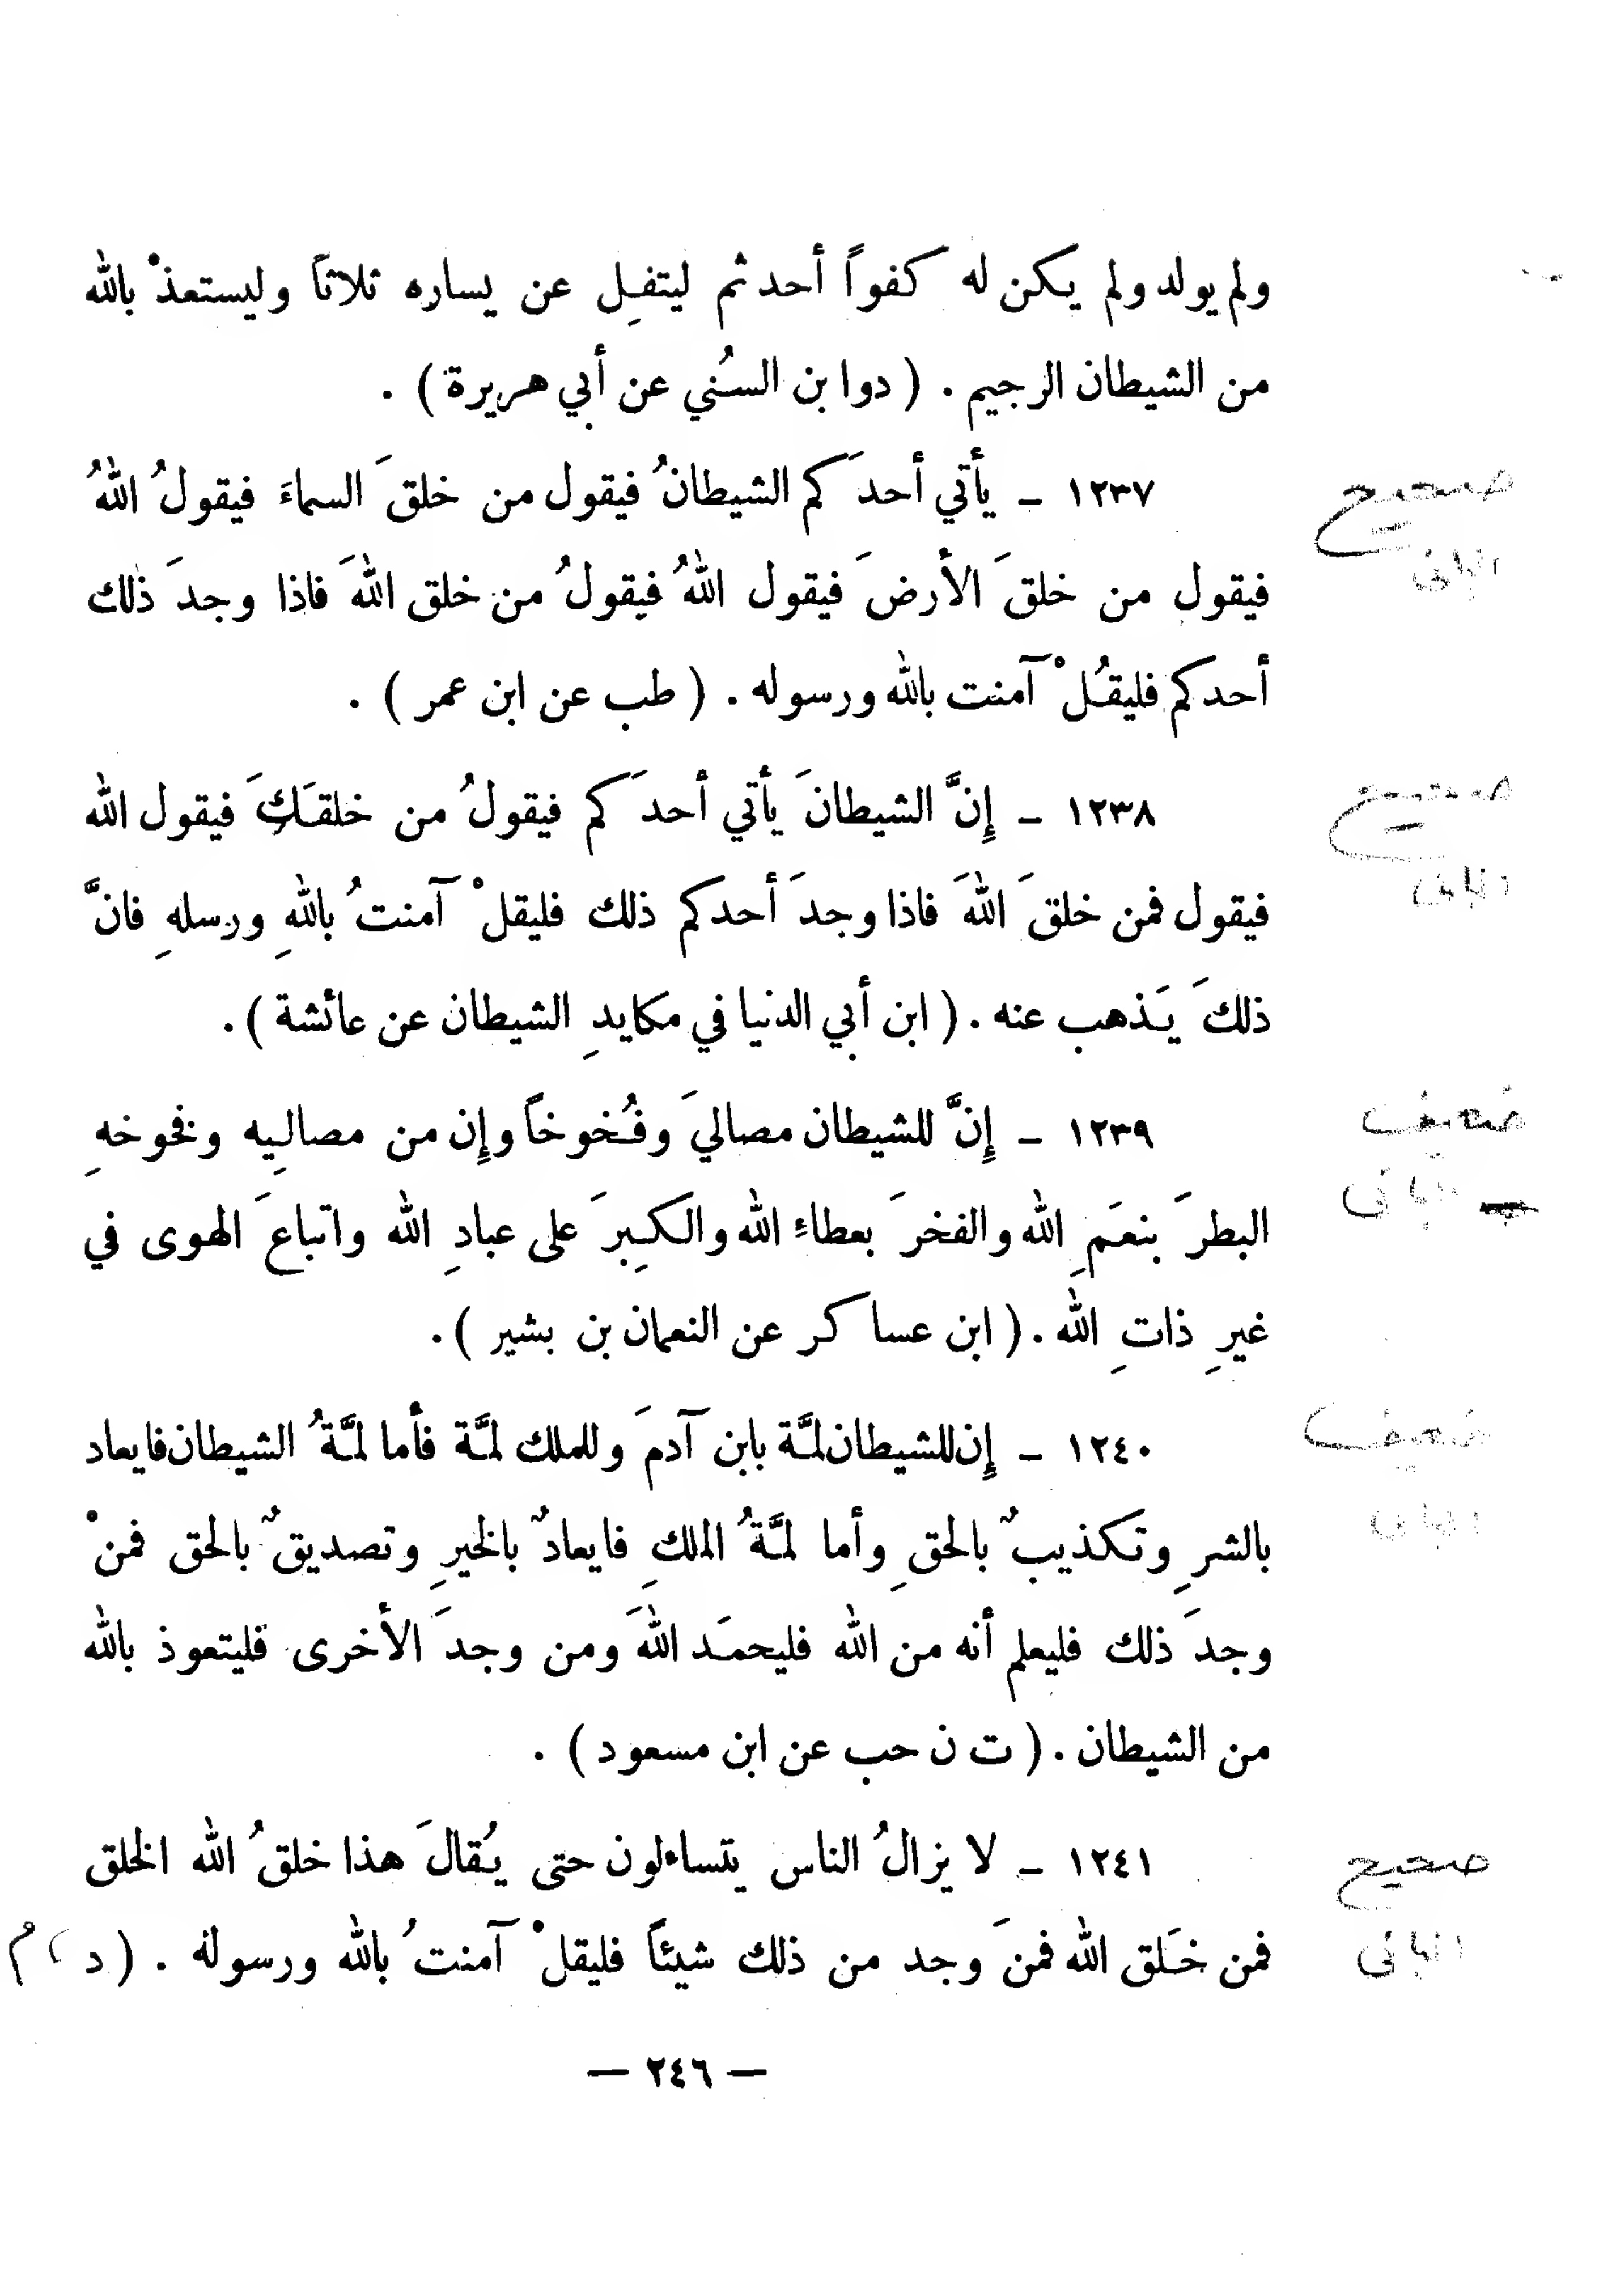 ولم يولد ولم يكن له كفواً أحد ثم ليتفِل عن يساره ثلاثاً وليستعذْ بالله
من الشيطان الرجيم . ( د وابن السُني عن أبي هريرة ) .
١٢٣٧ – يأتي أحدَكم الشيطانُ فيقول من خلقَ السماءَ فيقولُ اللهُ
فيقول من خلقَ الأرضَ فيقول اللهُ فيقولُ من خلق اللهَ فاذا وجدَ ذلك
أحدكم فليقُلْ آمنت بالله ورسوله . ( طب عن ابن عمر ) .
١٢٣٨ – إِنَّ الشيطانَ يأتي أحدَكم فيقولُ من خلقَكَ فيقول الله
فيقول فمن خلقَ اللهَ فاذا وجدَ أحدكم ذلك فليقلْ آمنتُ باللهِ ورسلهِ فانَّ
ذلكَ يَذهب عنه . ( ابن أبي الدنيا في مكايدِ الشيطان عن عائشة ) .
١٢٣٩ – إِنَّ للشيطان مصاليَ وفُخوخاً وإِن من مصالِيه وفخوخهِ
البطرَ بنعَمِ الله والفخرَ بعطاءِ الله والكِبرَ على عبادِ الله واتباعَ الهوى في
غيرِ ذاتِ الله . ( ابن عساكر عن النعمان بن بشير ) .
١٢٤٠ – إِن للشيطان لمَّة بابن آدمَ وللملك لمَّة فأما لمَّةُ الشيطان فايعاد
بالشرِ وتكذيبٌ بالحقِ وأما لمَّةُ الملكِ فايعادٌ بالخيرِ وتصديقٌ بالحق فمنْ
وجدَ ذلك فليعلم أنه من الله فليحمَد اللهَ ومن وجدَ الأخرى فليتعوذ بالله
من الشيطان . ( ت ن حب عن ابن مسعود ) .
١٢٤١ – لا يزالُ الناس يتساءلون حتى يُقالَ هذا خلقُ الله الخلق
فمن خَلق الله فمنَ وجد من ذلك شيئاً فليقلْ آمنتُ بالله ورسوله . ( د ، م
— ٢٤٦ —
صحيح
البانى
صحيح
البانى
ضعيف
البانى
ضعيف
البانى
صحيح
البانى